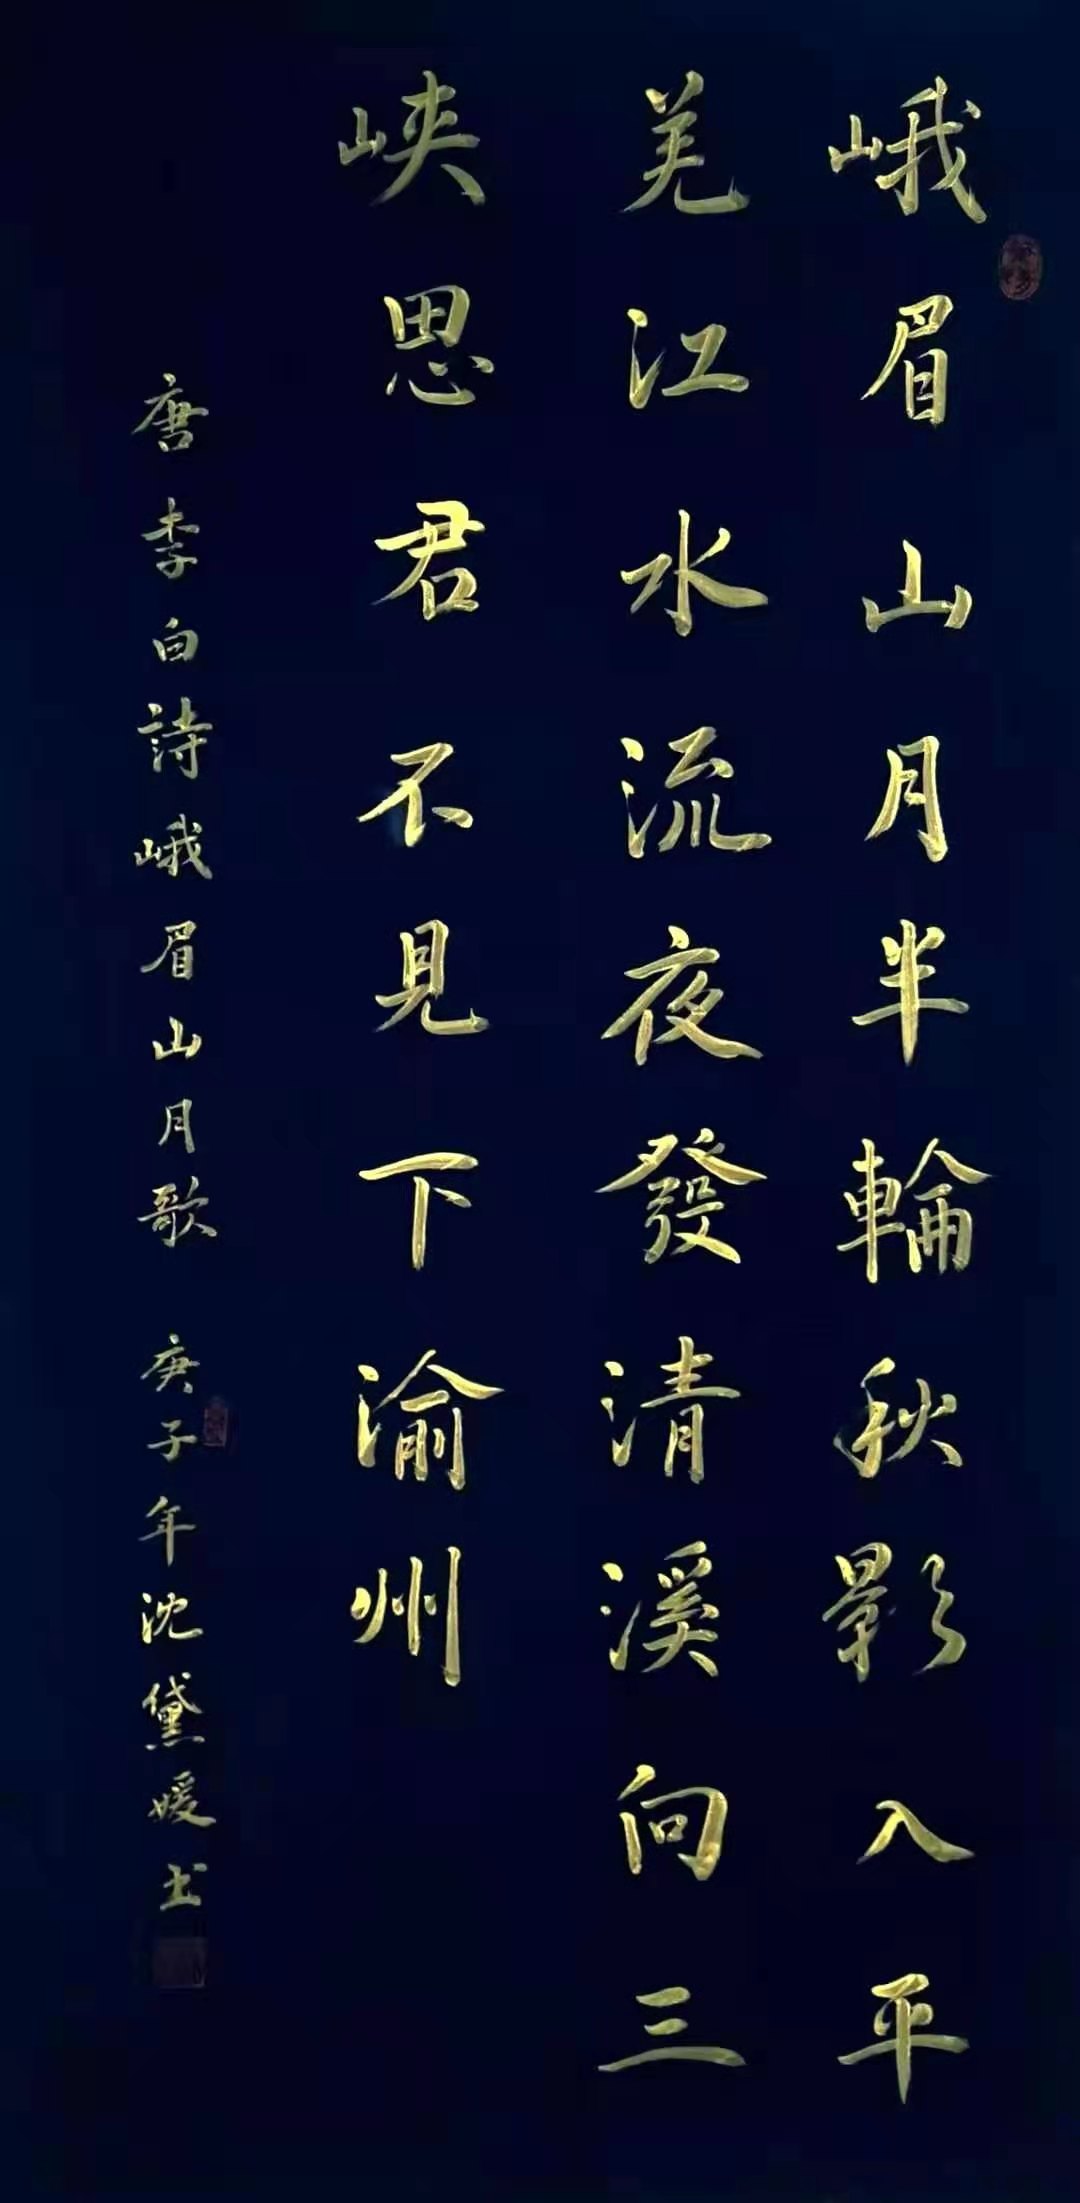 峨眉山月半輪秋影入平
羌江水流夜發清溪向三
峽思君不見下渝州
唐李白詩峨眉山月歌 庚子年沈黛媛书